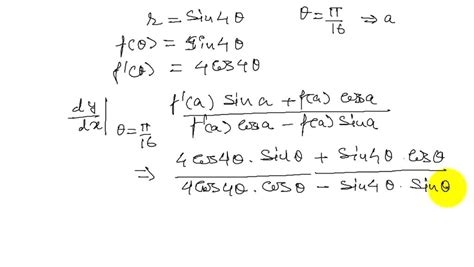 r = sin4θ θ = π/16 ⇒ a
f(θ) = sin4θ
f'(θ) = 4cos4θ
dy/dx |θ=π/16 f'(a) sina + f(a) cosa / f'(a) cosa − f(a) sina
⇒ 4cos4θ · sinθ + sin4θ · cosθ / 4cos4θ · cosθ − sin4θ · sinθ